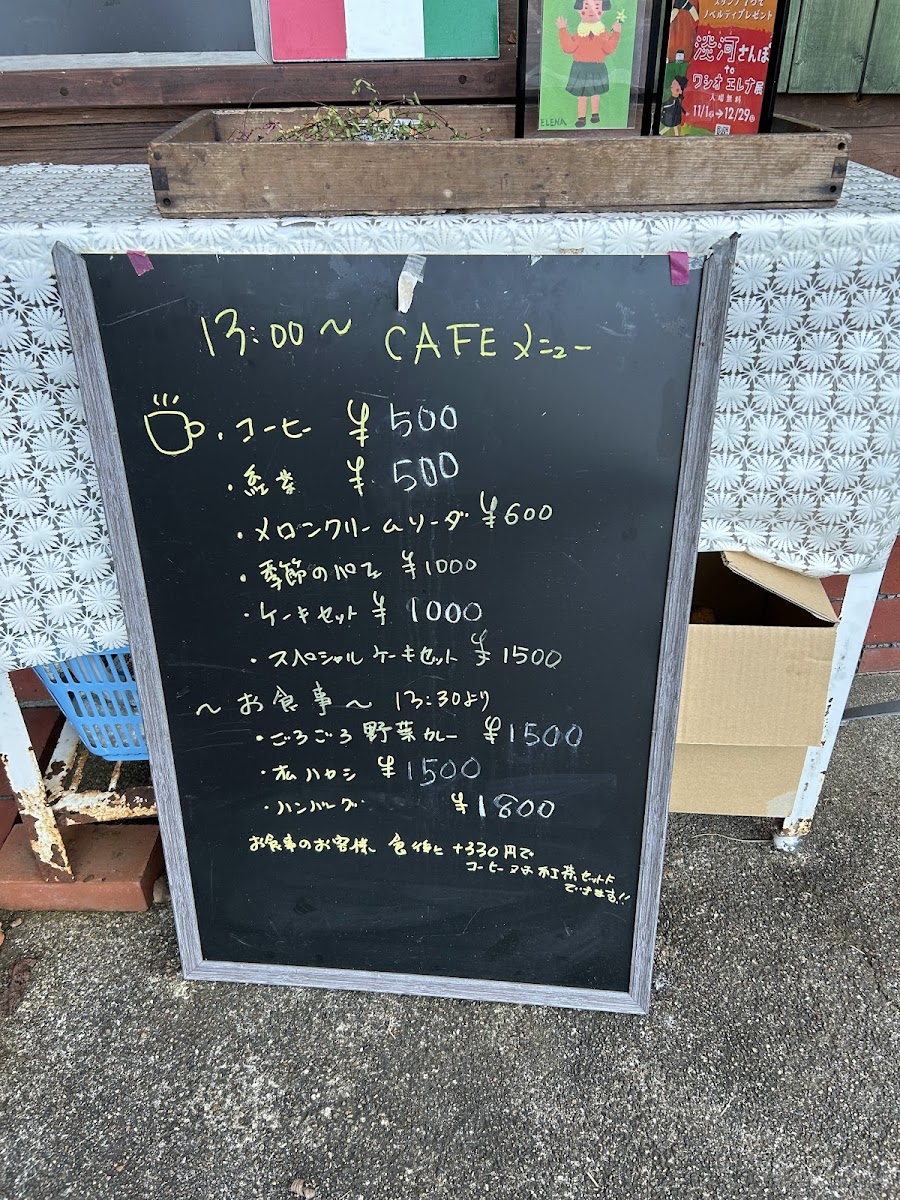 ELENA
スタンプラで
ノベルティプレゼント
淡河さんぽ
to
ワシオ エレナ展
入場無料
11/1(土)→12/29(月)
13:00~ CAFE メニュー
・コーヒー ¥500
・紅茶 ¥500
・メロンクリームソーダ ¥600
・季節のパフェ ¥1000
・ケーキセット ¥1000
・スペシャルケーキセット ¥1500
~お食事~ 13:30より
・ごろごろ野菜カレー ¥1500
・ハヤシ ¥1500
・ハンバーグ ¥1800
お食事のお客様 食後に +330円で
コーヒー又は紅茶セットに
できます!!